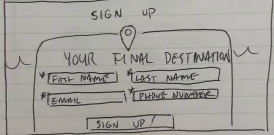 SIGN UP
YOUR FINAL DESTINATION
* FIRST NAME * LAST NAME
* EMAIL * PHONE NUMBER
SIGN UP!